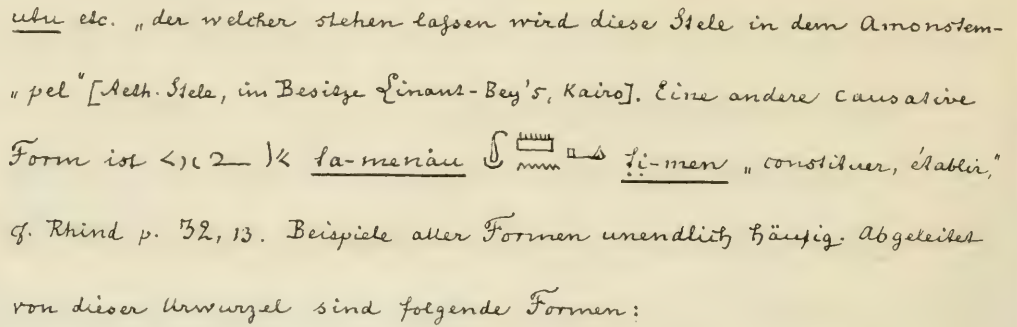 utu etc. „der welcher stehen lassen wird diese Stele in dem Amonstem-
„pel“ [Aeth. Stele, im Besitze Linant-Bey's, Kairo]. Eine andere causative
Form ist sa-menàu si-men „constituer, établir,“
cf. Rhind p. 32, 13. Beispiele aller Formen unendlich häufig. Abgeleitet
von dieser Urwurzel sind folgende Formen: